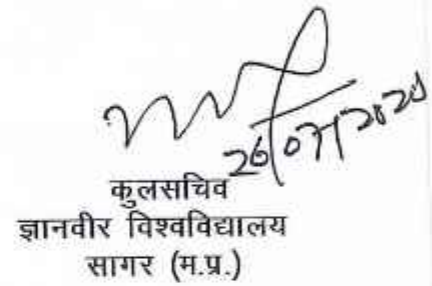 26/07/2024
कुलसचिव
ज्ञानवीर विश्वविद्यालय
सागर (म.प्र.)